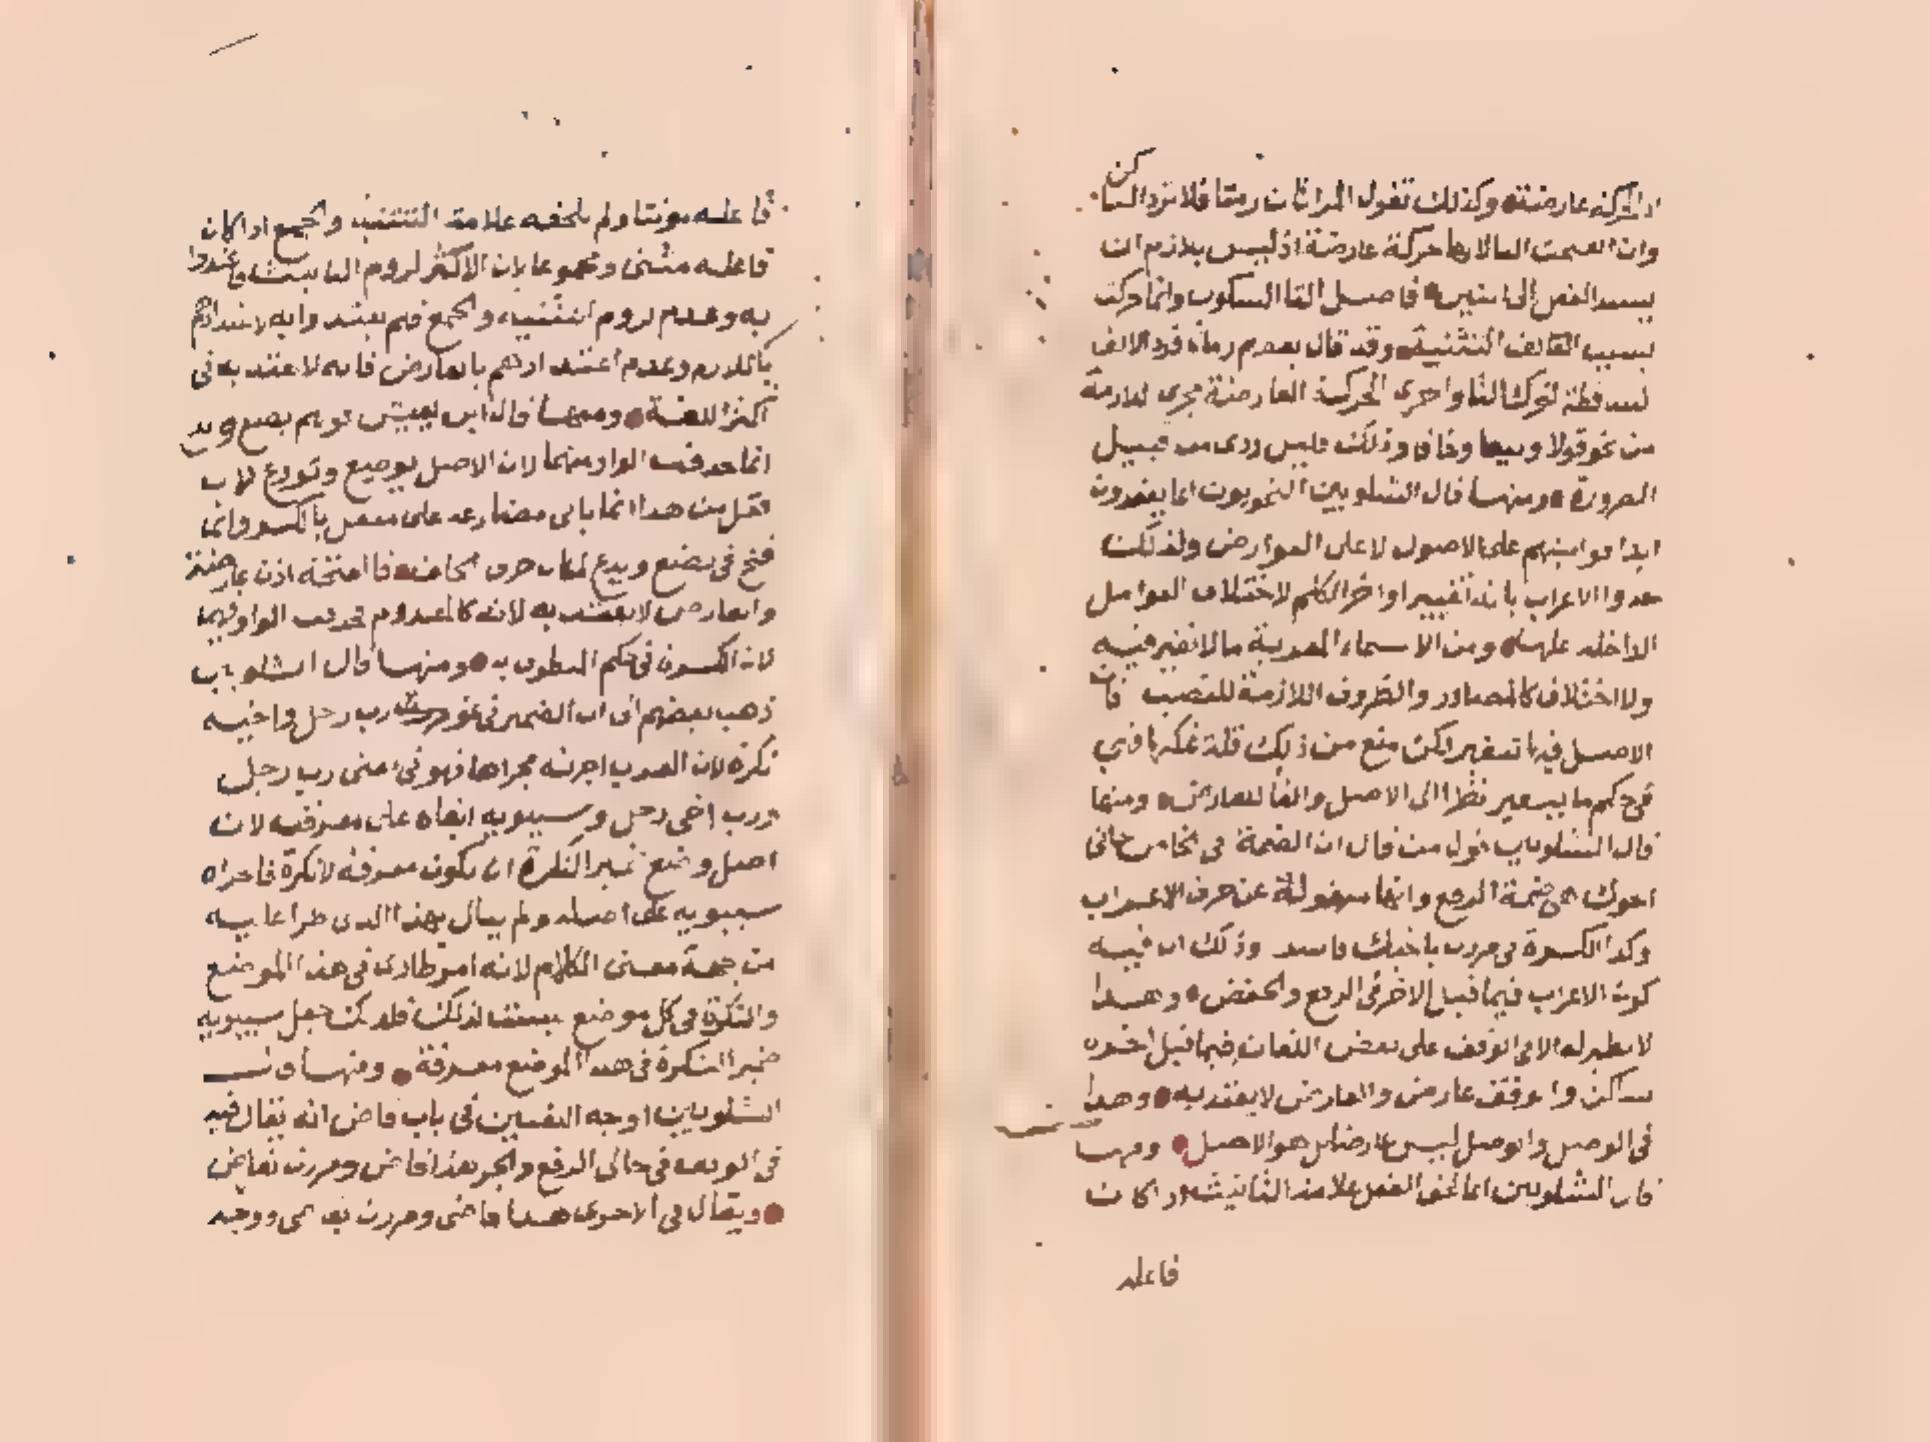 اذ الحركة عارضة وكذلك تقول المراتان رمتا فلا ترد الساكن
وان انفتحت التا لانها حركة عارضة اذ ليس بلازم ان
يسند الفعل الى اثنين فاصل التا السكون وانما حركت
بسبب الف التثنية وقد قال بعضهم رماتا فرد الالف
الساقطة لتحرك التا واجرى الحركة العارضة مجرى اللازمة
من نحو قولا وبيعا وخافا وذلك قليل ردى من قبيل
الضرورة ومنها قال الشلوبين النحويون انما يعقدون
ابدا قوانينهم على الاصول لا على العوارض ولذلك
حدوا الاعراب بانه تغيير اواخر الكلم لاختلاف العوامل
الداخلة عليها ومن الاسماء المعربة ما لا تغير فيه
ولا اختلاف كالمصادر والظروف اللازمة للنصب فان
الاصل فيها تتغير لكن منع من ذلك قلة تمكنها فهى
فى حكم ما يتغير نظرا الى الاصل والغا للعارض ومنها
قال الشلوبين قول من قال ان الضمة فى نحو جانى
اخوك هى ضمة الرفع وانها منقولة عن حرف الاعراب
وكذا الكسرة فى مررت باخيك فاسد وذلك ان فيه
كون الاعراب فيما قبل الاخر فى الرفع والخفض وهذا
لا نظير له الا فى الوقف على بعض اللغات فيما قبل اخره
ساكن والوقف عارض والعارض لا يعتد به وهذا
فى الوصل والوصل ليس عارضا بل هو الاصل ومنها
قال الشلوبين انما لحق الفعل علامة التانيث اذا كان
فاعله
فاعله مونثا ولم تلحقه علامة التثنية والجمع اذا كان
فاعله مثنى ومجموعا لان الاكثر لزوم التانيث فاعتدوا
به وعدم لزوم التثنية والجمع فلم يعتدوا به لاعتدادهم
باللازم وعدم اعتدادهم بالعارض فانه لا يعتد به فى
اكثر اللغة ومنها قال ابن يعيش قولهم يضع ويدع
انما حذفت الواو منهما لان الاصل يوضع ويودع لان
فعل من هذا انما ياتى مضارعه على يفعل بالكسر وانما
فتح فى يضع ويدع لمكان حرف الحلق فالفتحة اذن عارضة
والعارض لا يعتد به لانه كالمعدوم فحذفت الواو فيهما
لان الكسرة فى حكم المنطوق به ومنها قال الشلوبين
ذهب بعضهم الى ان الضمير فى نحو رب رجل واخيه
نكرة لان العرب اجرته مجراها فهو فى معنى رب رجل
ورب اخى رجل وسيبويه ابقاه على معرفته لان
اصل وضع ضمير النكرة ان يكون معرفة لا نكرة فاجراه
سيبويه على اصله ولم يبال بهذا الذى طرا عليه
من جهة معنى الكلام لانه امر طارى فى هذا الموضع
والنكرة فى كل موضع ليست كذلك فلذلك جعل سيبويه
ضمير النكرة فى هذا الموضع معرفة ومنها قال
الشلوبين اوجه اللغتين فى باب قاض انه يقال فيه
فى الوقف فى حالى الرفع والجر هذا قاض ومررت بقاض
ويقال فى الاخرى هذا قاضى ومررت بقاضى ووجه